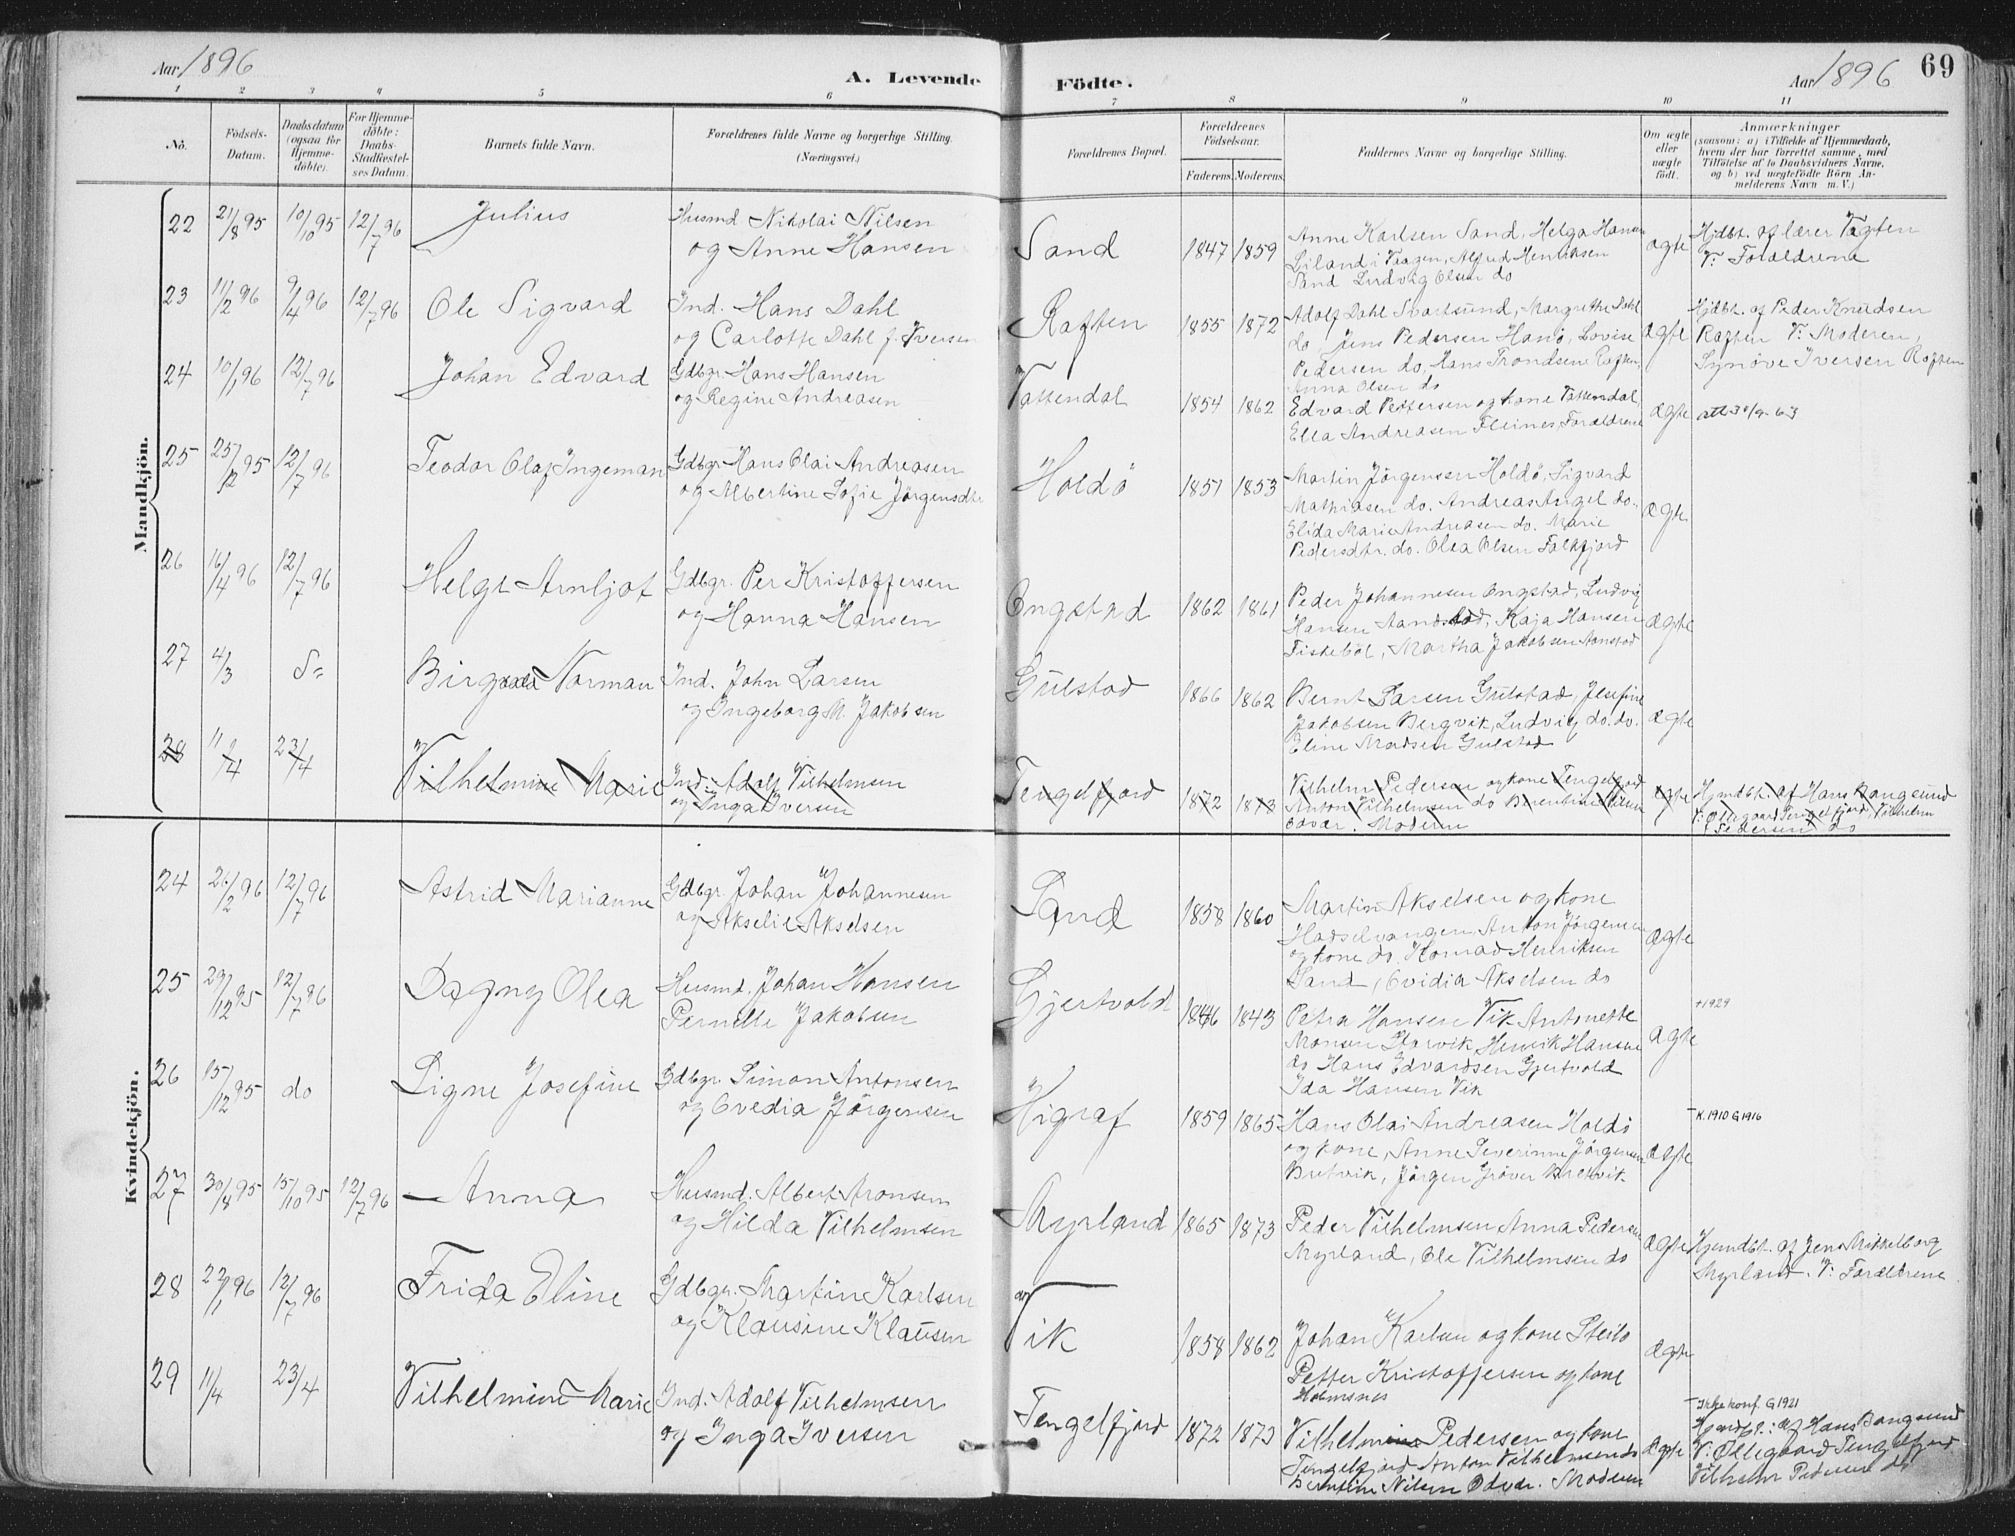 Aar 1896
A. Levende Födte.
Aar 1896
69
1 2 3 4 5 6 7 8 9 10 11
No.
Födsels-Datum.
Daabsdatum (ogsaa for Hjemmedöbte).
For Hjemmedöbte: Daabs-Stadfæstelses Datum.
Barnets fulde Navn.
Forældrenes fulde Navne og borgerlige Stilling. (Næringsvei.)
Forældrenes Bopæl.
Forældrenes Födselsaar.
Faderens. Moderens.
Faddernes Navne og borgerlige Stilling.
Om ægte eller uægte født.
Anmærkninger
(saasom: a) i Tilfælde af Hjemmedaab, hvem der har forrettet samme, med Tilföielse af to Daabsvidners Navne, og b) ved uægtefödte Börn Anmelderens Navn m. V.)
Mandkjön.
22 21/8 95 10/10 95 12/7 96 Julius
Husmd Nikolai Nilsen
og Anne Hansen
Sand 1847 1859
Anne Karlsen Sand, Helga Hansen
Liland i Vaagen, Alfred Henriksen
Sand Ludvig Olsen do
ægte
Hjdbt. af lærer Vogten
V: Forældrene
23 11/2 96 9/4 96 12/7 96 Ole Sigvard
Ind. Hans Dahl
og Carlotte Dahl f. Iversen
Raften 1855 1872
Adolf Dahl Svartsund, Margrethe Dahl
do Jens Pedersen Hanö, Lovise
Pedersen do, Hans Trondsen Raften,
Anna Olsen do
ægte
Hjdbt. af Peder Knudsen
Raften V: Moderen,
Synöve Iversen Raften
24 10/1 96 12/7 96 Johan Edvard
Gdbgr. Hans Hansen
og Regine Andreasen
Vattendal 1854 1862
Edvard Pettersen og kone Vattendal,
Ella Andreasen Fleines, Forældrene
ægte
att 30/9-63
25 25/12 95 12/7 96 Teodor Olaf Ingeman
Gdbgr. Hans Olai Andreasen
og Albertine Sofie Jörgensdtr
Holdö 1851 1853
Martin Jörgensen Holdö, Sigvard
Mathiasen do. Andreas Angel do.
Elida Marie Andreasen do. Marie
Pedersdtr. do. Olea Olsen Falkfjord
ægte
26 16/4 96 12/7 96 Helge Arnljot
Gdbgr. Per Kristoffersen
og Hanna Hansen
Ongstad 1862 1861
Peder Johannesen Ongstad, Ludvig
Hansen Aanstad, Kaja Hansen
Fiskeböl, Martha Jakobsen Aanstad
ægte
27 4/3 do Birger Norman
Ind. John Larsen
og Ingeborg M. Jakobsen
Gulstad 1866 1862
Bernt Larsen Gulstad, Josefine
Jakobsen Bergvik, Ludvig do. do.
Eline Madsen Gulstad
ægte
28 11/4 23/4 Vilhelmine Marie
Ind. Adolf Vilhelmsen
og Inga Iversen
Tengelfjord 1872 1873
Vilhelm Pedersen og kone Tengelfjord
Anton Vilhelmsen do Berentine Nilsen
Odvær. Moderen
ægte
Hjemdbt. af Hans Bangsund
V: Ollegaard Tengelfjord, Vilhelm
Pedersen do
Kvindekjön.
24 26/2 96 12/7 96 Astrid Marianne
Gdbgr. Johan Johannesen
og Akselie Akselsen
Sand 1858 1860
Martin Akselsen og kone
Hadselvangen, Anton Jörgensen
og kone do. Konrad Henriksen
Sand, Ovidia Akselsen do
ægte
25 23/12 95 12/7 96 Dagny Olea
Husmd. Johan Hansen
Pernelle Jakobsen
Gjertvold 1846 1843
Petra Hansen Vik Antonette
Monsen Storvik Henrik Hansen
do Hans Edvardsen Gjertvold
Ida Hansen Vik
ægte
+1929
26 15/12 95 do Signe Josefine
Gdbgr. Simon Antonsen
og Ovedia Jörgensen
Higraf 1859 1865
Hans Olai Andreasen Holdö
og kone, Anne Severinne Jörgensen
Bretvik, Jörgen Gröver Bretvik
ægte
K.1910 G 1916
27 30/8 95 15/10 95 12/7 96 Anna
Husmd. Albert Aronsen
og Hilda Vilhelmsen
Myrland 1865 1873
Peder Vilhelmsen Anna Pedersen
Myrland, Ole Vilhelmsen do
ægte
Hjemdbt. af Jens Mikkelborg
Myrland. V: Forældrene
28 22/1 96 12/7 96 Frida Eline
Gdbgr. Martin Karlsen
og Klausine Klausen
Vik 1858 1862
Johan Karlsen og kone Steilo
Petter Kristoffersen og kone
Holmsnes
ægte
29 11/4 23/4 Vilhelmine Marie
Ind. Adolf Vilhelmsen
og Inga Iversen
Tengelfjord 1872 1873
Vilhelm Pedersen og kone
Tengelfjord Anton Vilhelmsen do
Berntine Nilsen Odvær. Moderen
ægte
Ikke konf. G 1921
Hjemdbt.: af Hans Bangsund
V: Ollegaard Tengelfjord
Vilhelm Pedersen do